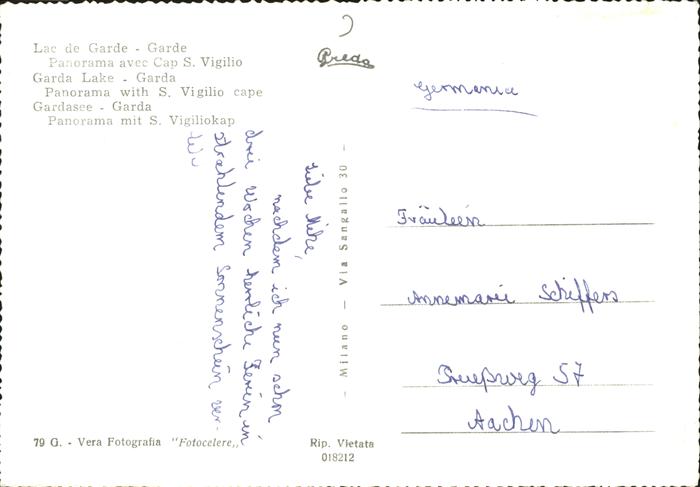 Lac de Garde - Garde
Panorama avec Cap S. Vigilio
Garda Lake - Garda
Panorama with S. Vigilio cape
Gardasee - Garda
Panorama mit S. Vigiliokap
Preda
- Milano - Via Sangallo 30 -
Liebe
nachdem ich nun schon
drei Wochen herrliche Ferien in
strahlendem Sonnenschein ver-
Germania
Fräulein
Annemarie Schiffers
57
Aachen
79 G. - Vera Fotografia "Fotocelere„
Rip. Vietata
018212